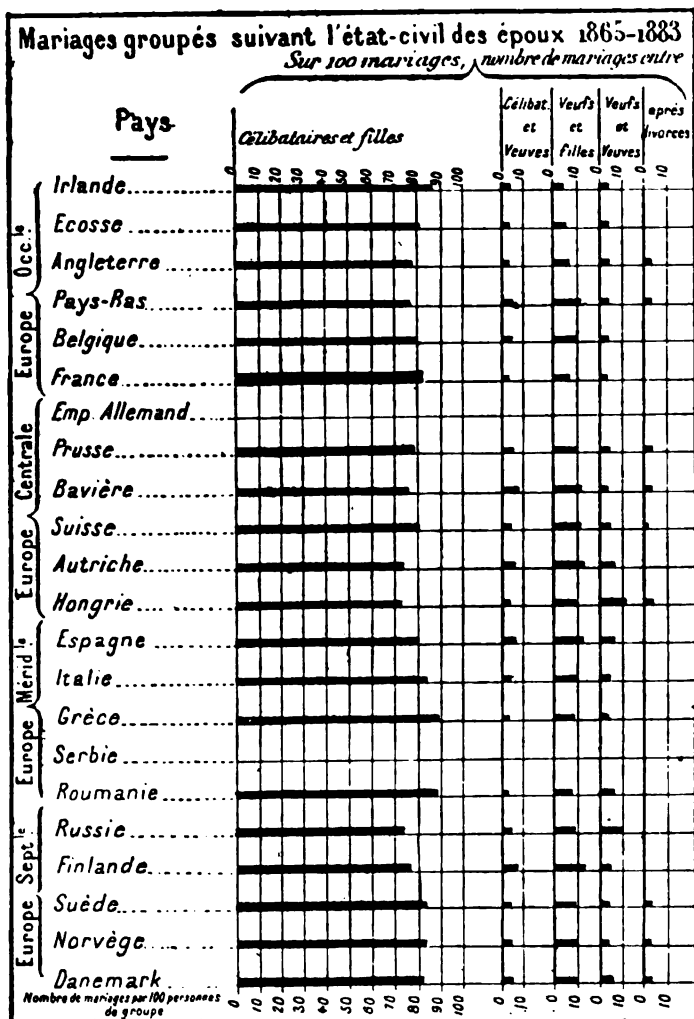 Mariages groupés suivant l'état-civil des époux 1865-1883
Sur 100 mariages, nombre de mariages entre
Pays
Célibataires et filles
Célibat. et Veuves
Veufs et filles
Veufs et Veuves
après divorces
0 10 20 30 40 50 60 70 80 90 100 0 10 0 10 0 10 0 10
Europe Occ.le
Irlande
Ecosse
Angleterre
Pays-Ras
Belgique
France
Europe Centrale
Emp. Allemand
Prusse
Bavière
Suisse
Autriche
Hongrie
Europe Mérid.le
Espagne
Italie
Grèce
Serbie
Roumanie
Europe Sept.le
Russie
Finlande
Suède
Norvège
Danemark
Nombre de mariages par 100 personnes
de groupe
0 10 20 30 40 50 60 70 80 90 100 0 10 0 10 0 10 0 10